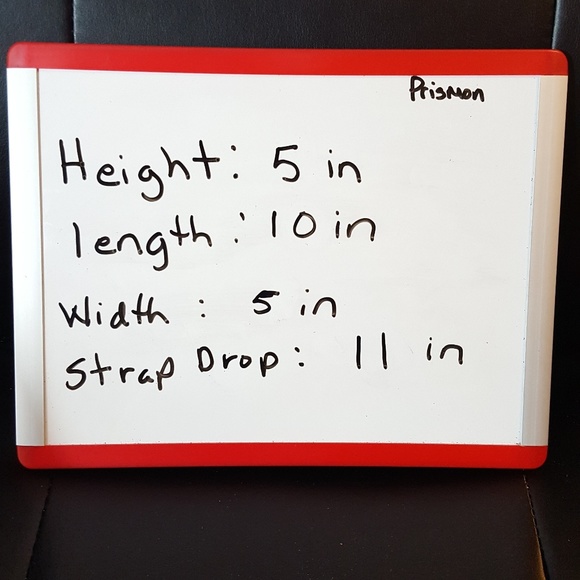 Prismon
Height: 5 in
length: 10 in
Width: 5 in
Strap Drop: 11 in